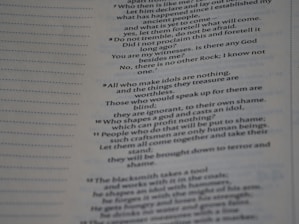 ⁷ Who then is like me? Let him
Let him declare and lay out before me
what has happened since I established my
ancient people,
and what is yet to come—
yes, let them foretell what will come.
⁸ Do not tremble, do not be afraid.
Did I not proclaim this and foretell it
long ago?
You are my witnesses. Is there any God
besides me?
No, there is no other Rock; I know not
one."
⁹ All who make idols are nothing,
and the things they treasure are
worthless.
Those who would speak up for them are
blind;
they are ignorant, to their own shame.
¹⁰ Who shapes a god and casts an idol,
which can profit nothing?
¹¹ People who do that will be put to shame;
such craftsmen are only human beings.
Let them all come together and take their
stand;
they will be brought down to terror and
shame.
¹² The blacksmith takes a tool
and works with it in the coals;
he shapes an idol with hammers,
he forges it with the might of his arm.
He gets hungry and loses his strength;
he drinks no water and grows faint.